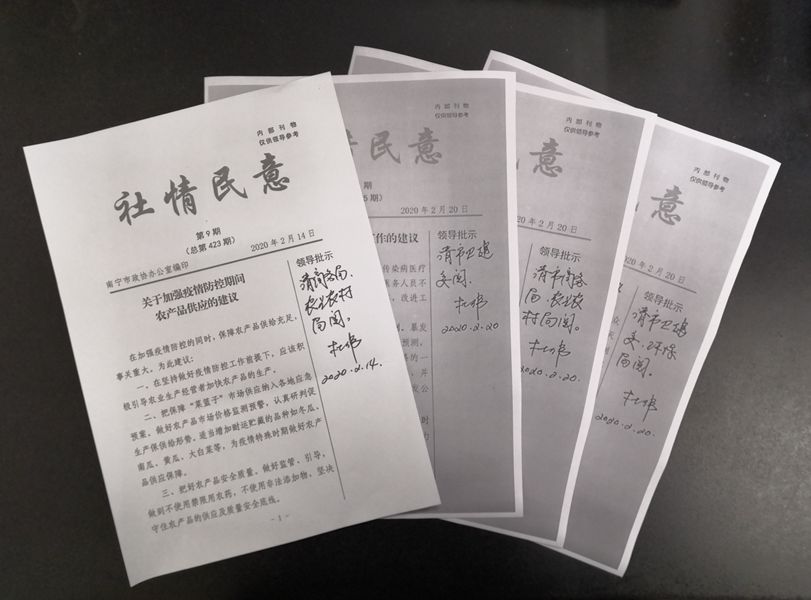 内部刊物
仅供领导参考
社情民意
第9期
（总第423期）
南宁市政协办公室编印
2020年2月14日
关于加强疫情防控期间
农产品供应的建议
在加强疫情防控的同时，保障农产品供给充足，
事关重大。为此建议：
一、在坚持做好疫情防控工作前提下，应该积
极引导农业生产经营者加快农产品的生产。
二、把保障“菜篮子”市场供应纳入各地应急
预案。做好农产品市场价格监测预警，认真研判促
生产保供给形势。适当增加耐运贮藏的品种如冬瓜、
南瓜、黄瓜、大白菜等，为疫情特殊时期做好农产
品供应保障。
三、把好农产品安全质量。做好监管、引导，
做到不使用禁限用农药，不使用非法添加物，坚决
守住农产品的供应及质量安全底线。
- 1 -
领导批示
请商务局、
农业农村
局阅。
杜伟
2020.2.14.
内部刊物
仅供领导参考
民意
期
5期）
2020年2月20日
作的建议
传染病医疗
医务人员不
改进工
暴发
预测，
务的一
并
发公
时
力
领导批示
请市卫健
委阅。
杜伟
2020.2.20
内部刊物
仅供领导参考
意
2020年2月20日
领导批示
请市商务
局、农业农
村局阅。
杜伟
2020.2.20.
内部刊物
仅供领导参考
意
2020年2月20日
领导批示
请市卫健
委、环保
局阅。
杜伟
2020.2.20.